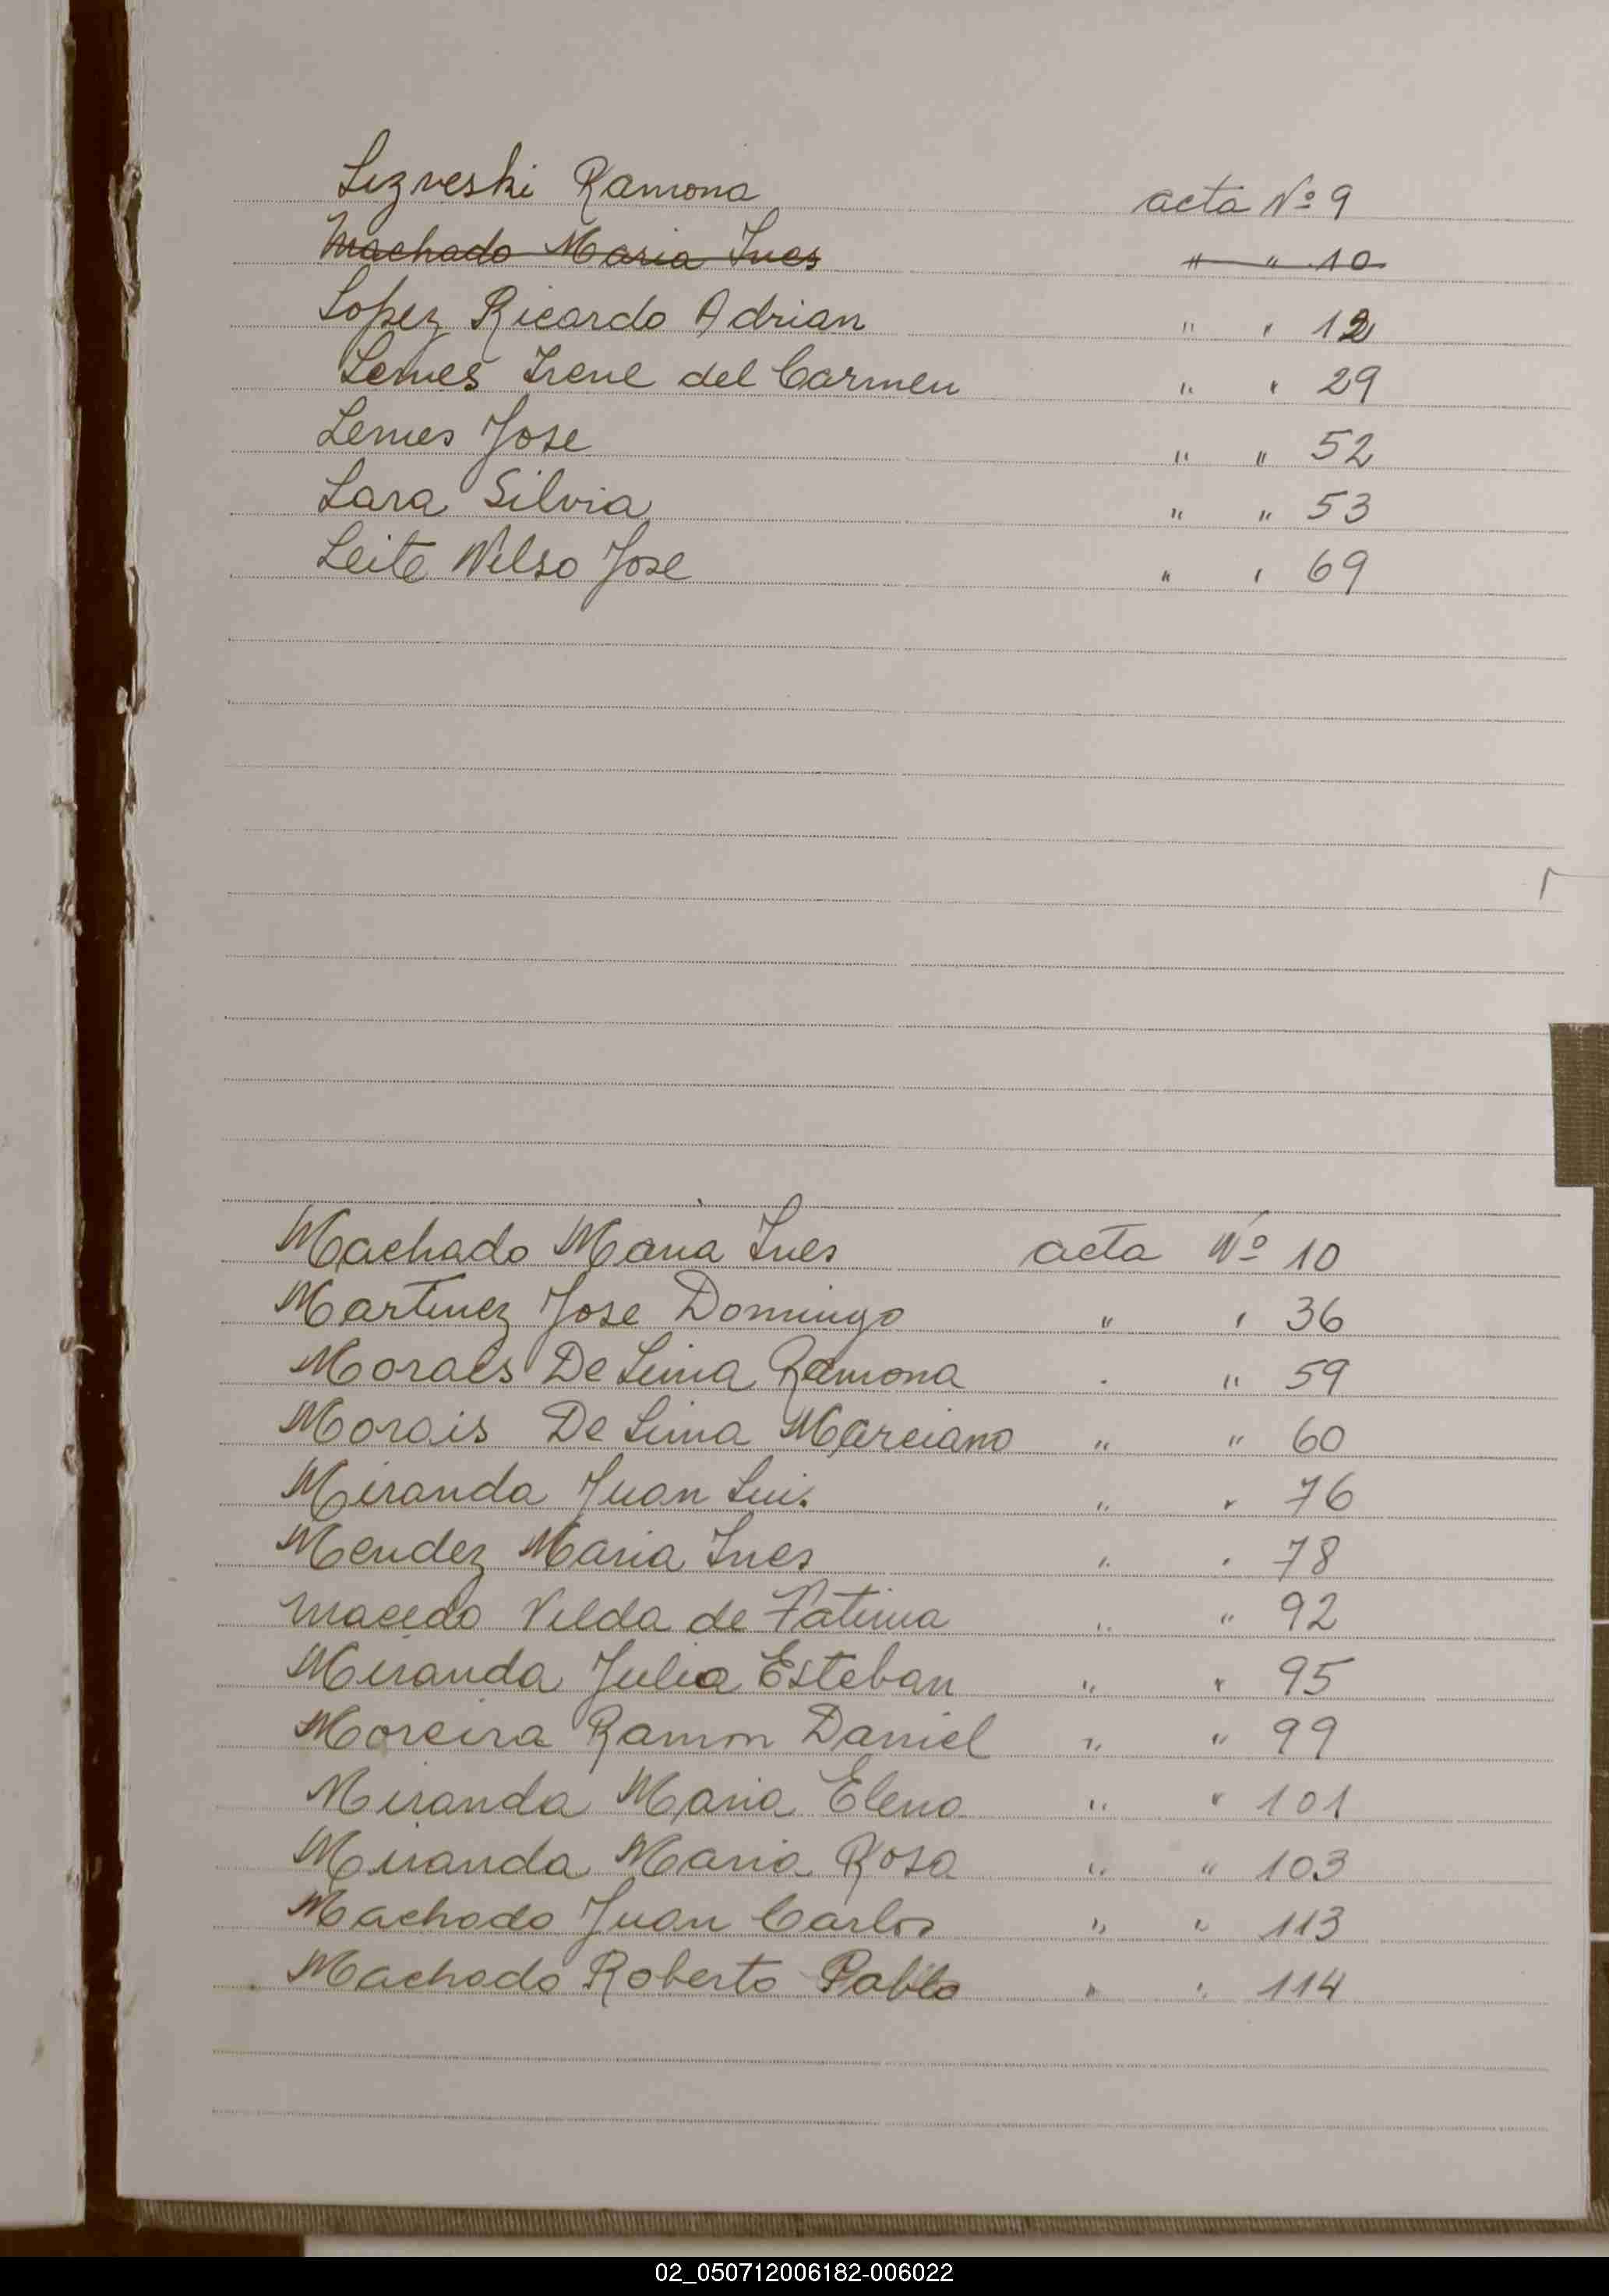 Lezveski Ramona acta Nº 9
Machado Maria Ines " " 10
Lopez Ricardo Adrian " " 12
Lemes Irene del Carmen " " 29
Lemes Jose " " 52
Lara Silvia " " 53
Leite Nelso Jose " " 69
Machado Maria Ines acta Nº 10
Martinez Jose Domingo " " 36
Moraes De Lima Ramona " " 59
Morais De Lima Marciano " " 60
Miranda Juan Luis " " 76
Mendez Maria Ines " " 78
Macedo Velda de Fatima " " 92
Miranda Julio Esteban " " 95
Moreira Ramon Daniel " " 99
Miranda Maria Elena " " 101
Miranda Maria Rosa " " 103
Machado Juan Carlos " " 113
Machado Roberto Pablo " " 114
02_050712006182-006022